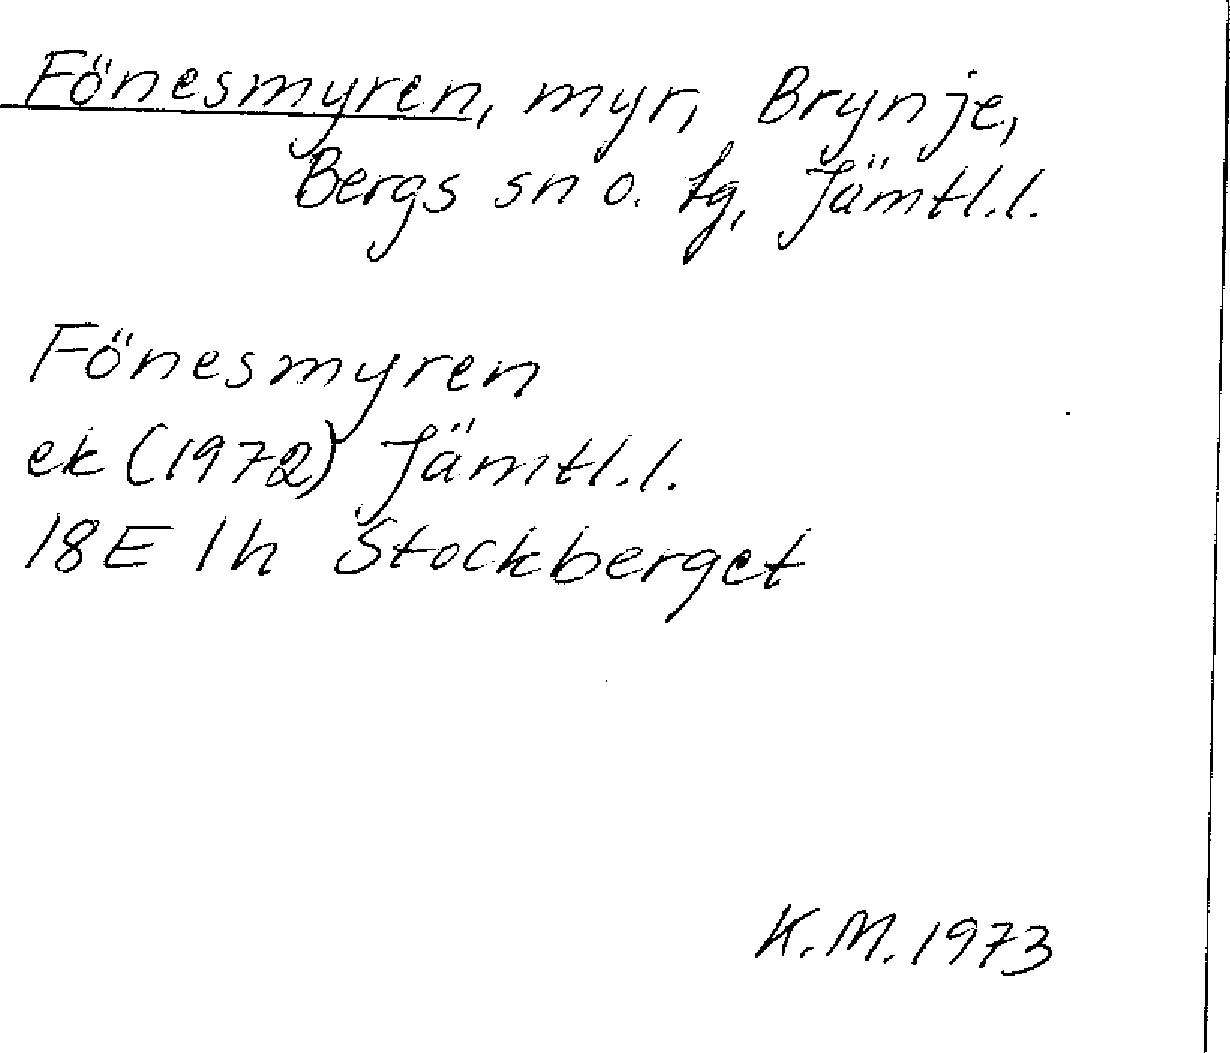 Fönesmyren, myr, Brynje,
Bergs sn o. tg, Jämtl.l.
Fönesmyren
ek (1972) Jämtl.l.
18E 1h Stockberget
K.M. 1973